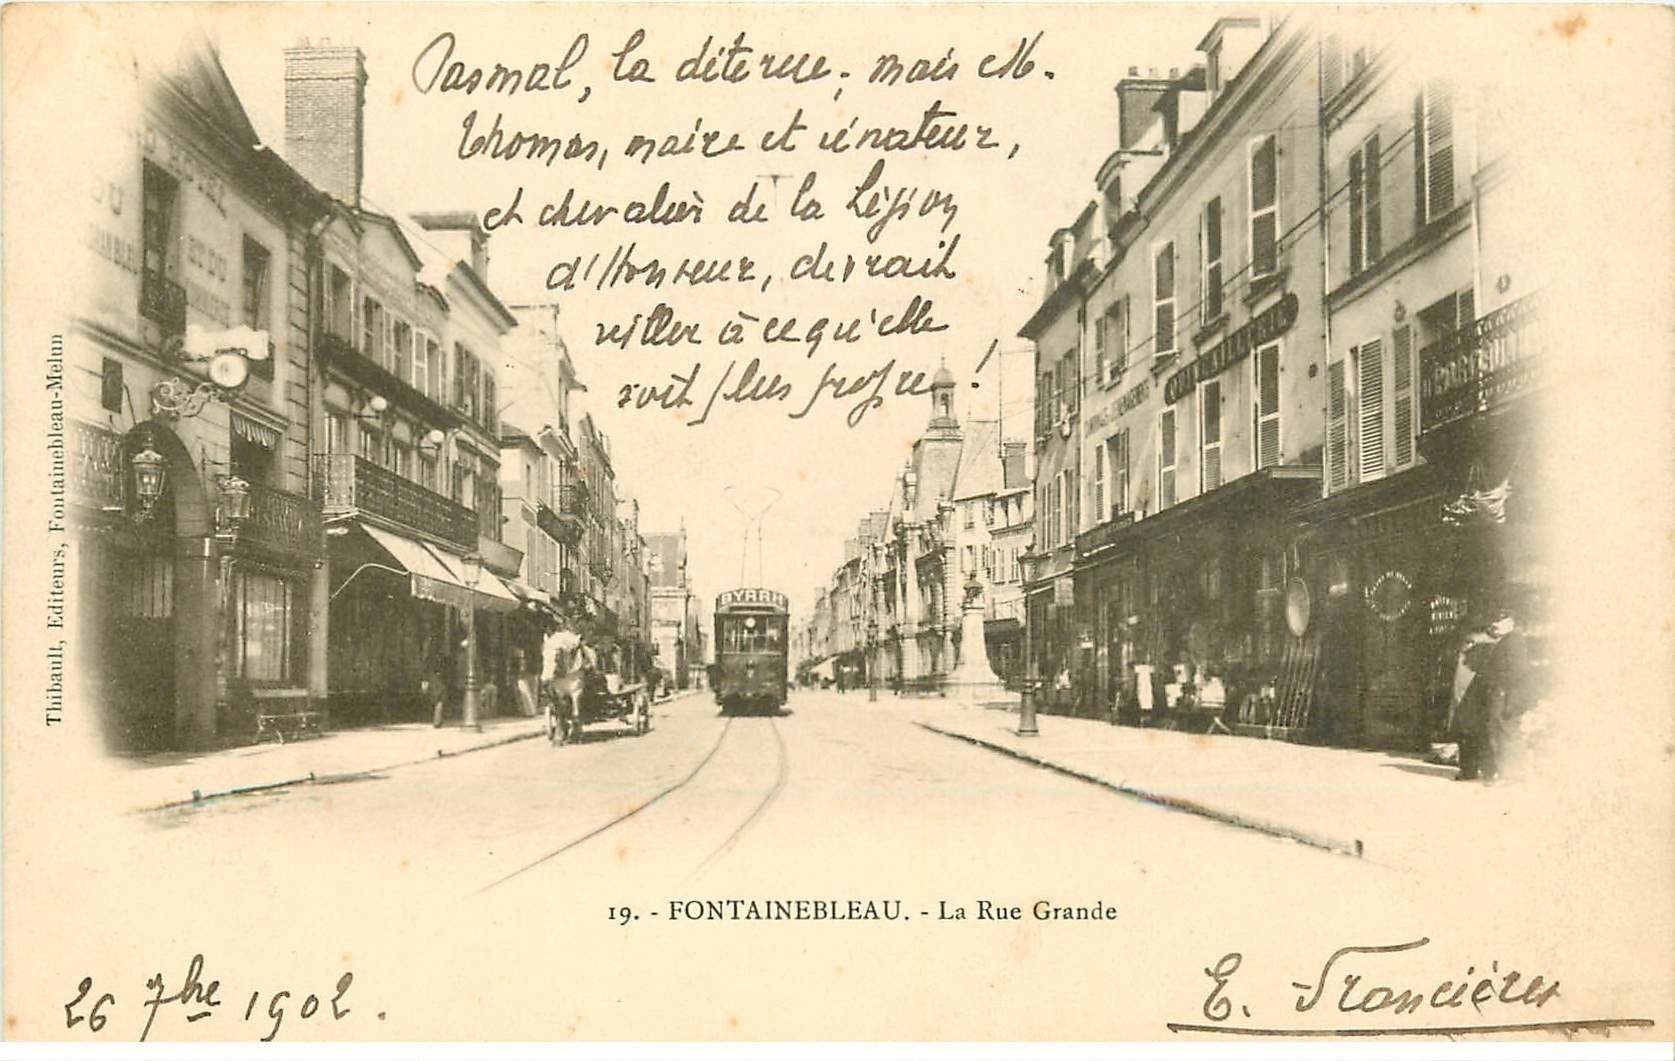 Pas mal, la dite rue; mais M.
Thomas, maire et sénateur,
et chevalier de la Légion
d'Honneur, devrait
veiller à ce qu'elle
soit plus propre !
DU
ET DU
QUINCAILLERIE
BYRRH
Thibault, Editeurs, Fontainebleau-Melun
19. - FONTAINEBLEAU. - La Rue Grande
26 7bre 1902.
E. Francières